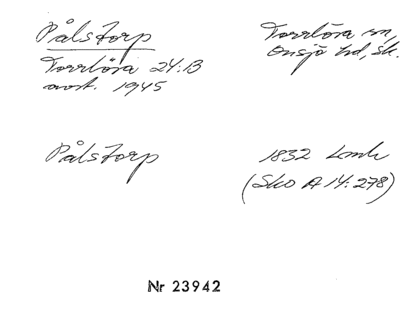 Pålstorp
Torrlösa sn,
Onsjö hd, Sk.
Torrlösa 24:13
avst. 1945
Pålstorp
1832 Lmk
(Sko A 14:278)
Nr 23942